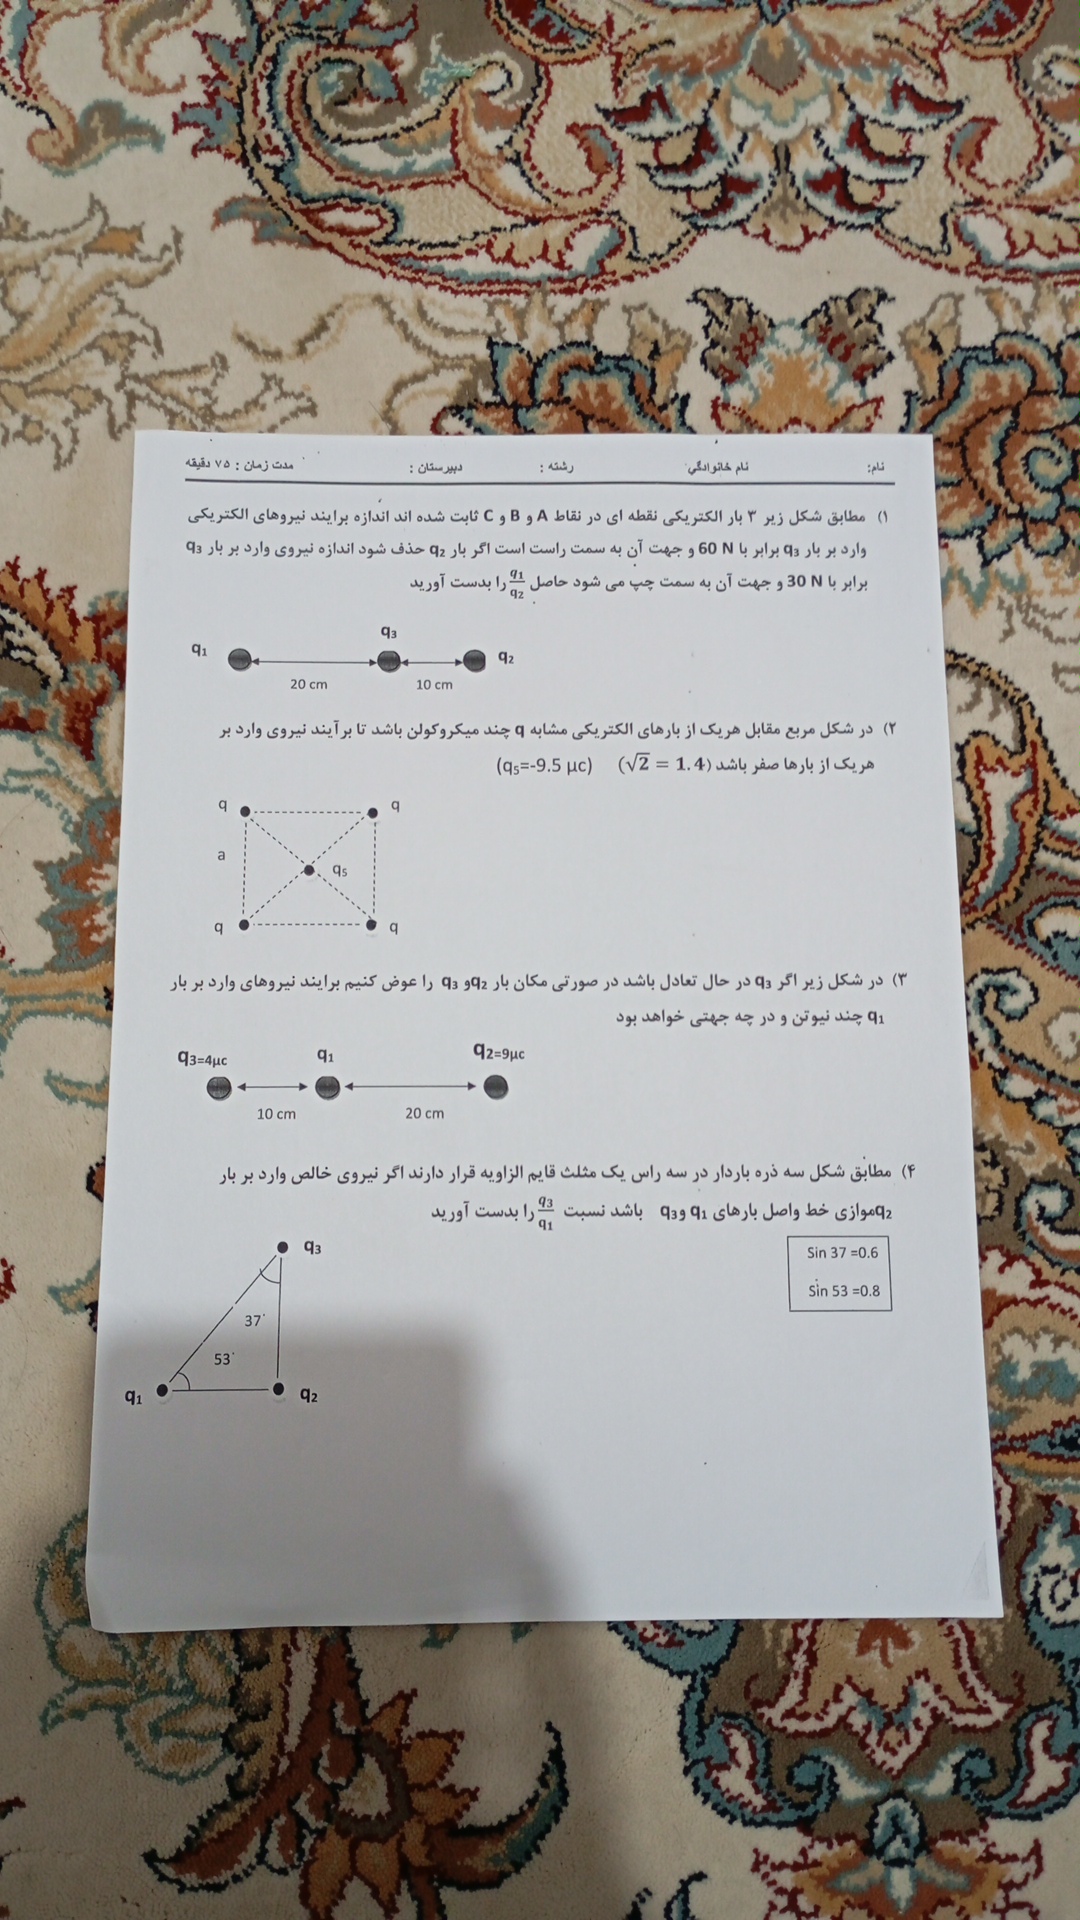 نام: نام خانوادگی رشته : دبیرستان : مدت زمان : ۷۵ دقیقه
۱) مطابق شکل زیر ۳ بار الکتریکی نقطه ای در نقاط A و B و C ثابت شده اند اندازه برایند نیروهای الکتریکی
وارد بر بار q₃ برابر با 60 N و جهت آن به سمت راست است اگر بار q₂ حذف شود اندازه نیروی وارد بر بار q₃
برابر با 30 N و جهت آن به سمت چپ می شود حاصل q₁/q₂ را بدست آورید
q₁ q₃ q₂
20 cm 10 cm
۲) در شکل مربع مقابل هریک از بارهای الکتریکی مشابه q چند میکروکولن باشد تا برآیند نیروی وارد بر
هریک از بارها صفر باشد (√2 = 1.4) (q₅=-9.5 μc)
q q
a q₅
q q
۳) در شکل زیر اگر q₃ در حال تعادل باشد در صورتی مکان بار q₂و q₃ را عوض کنیم برایند نیروهای وارد بر بار
q₁ چند نیوتن و در چه جهتی خواهد بود
q₃=4μc q₁ q₂=9μc
10 cm 20 cm
۴) مطابق شکل سه ذره باردار در سه راس یک مثلث قایم الزاویه قرار دارند اگر نیروی خالص وارد بر بار
q₂موازی خط واصل بارهای q₁ وq₃ باشد نسبت q₃/q₁ را بدست آورید
Sin 37 =0.6
Sin 53 =0.8
q₃
37°
53°
q₁ q₂